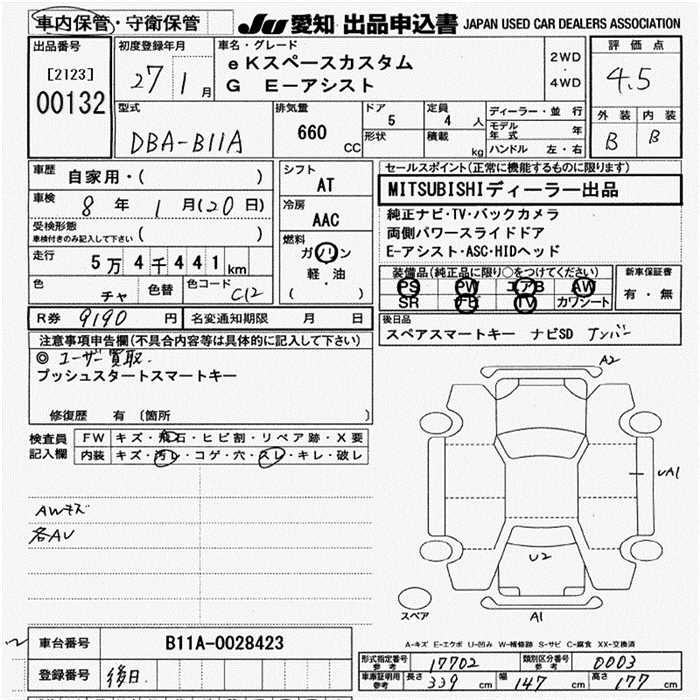 車内保管・守衛保管
JU 愛知 出品申込書 JAPAN USED CAR DEALERS ASSOCIATION
出品番号
[2123]
00132
初度登録年月
27 1 月
車名・グレード
eKスペースカスタム
G E-アシスト
2WD
・
4WD
評価点
4.5
外装 内装
B B
型式
DBA-B11A
排気量
660 CC
ドア
5
形状
定員
4 人
積載
kg
ディーラー・並行
モデル年式 年
ハンドル 左・右
車歴 自家用・( )
車検 8 年 1 月(20日)
受検形態
車検付きのみ記入して下さい ( )
走行 5万4千441km
色 チャ 色替 色コード C12
シフト
AT
冷房
AAC
燃料
ガソリン
軽・油
( )
セールスポイント(正常に機能するものに限ります)
MITSUBISHIディーラー出品
純正ナビ・TV・バックカメラ
両側パワースライドドア
E-アシスト・ASC・HIDヘッド
装備品(純正品に限り○をつけてください)
PS PW エアB AW
SR ナビ TV カワシート
新車保証書
有・無
R券 9190 円 名変通知期限 月 日
後日品
スペアスマートキー ナビSD ナンバー
注意事項申告欄(不具合内容等は具体的に記入して下さい)
◎ ユーザー買取.
プッシュスタートスマートキー
修復歴 有 〔箇所 〕
検査員記入欄
FW キズ・飛石・ヒビ割・リペア跡・X要
内装 キズ・汚レ・コゲ・穴・スレ・キレ・破レ
AWキズ
各AU
A2
UA1
U2
A1
スペア
A-キズ E-エクボ U-凹み W-補修跡 S-サビ C-腐食 XX-交換済
車台番号 B11A-0028423
登録番号 後日.
形式指定番号 参考 17702 類別区分番号 参考 0003
車庫証明用 参考 長さ 339 cm 幅 147 cm 高さ 177 cm